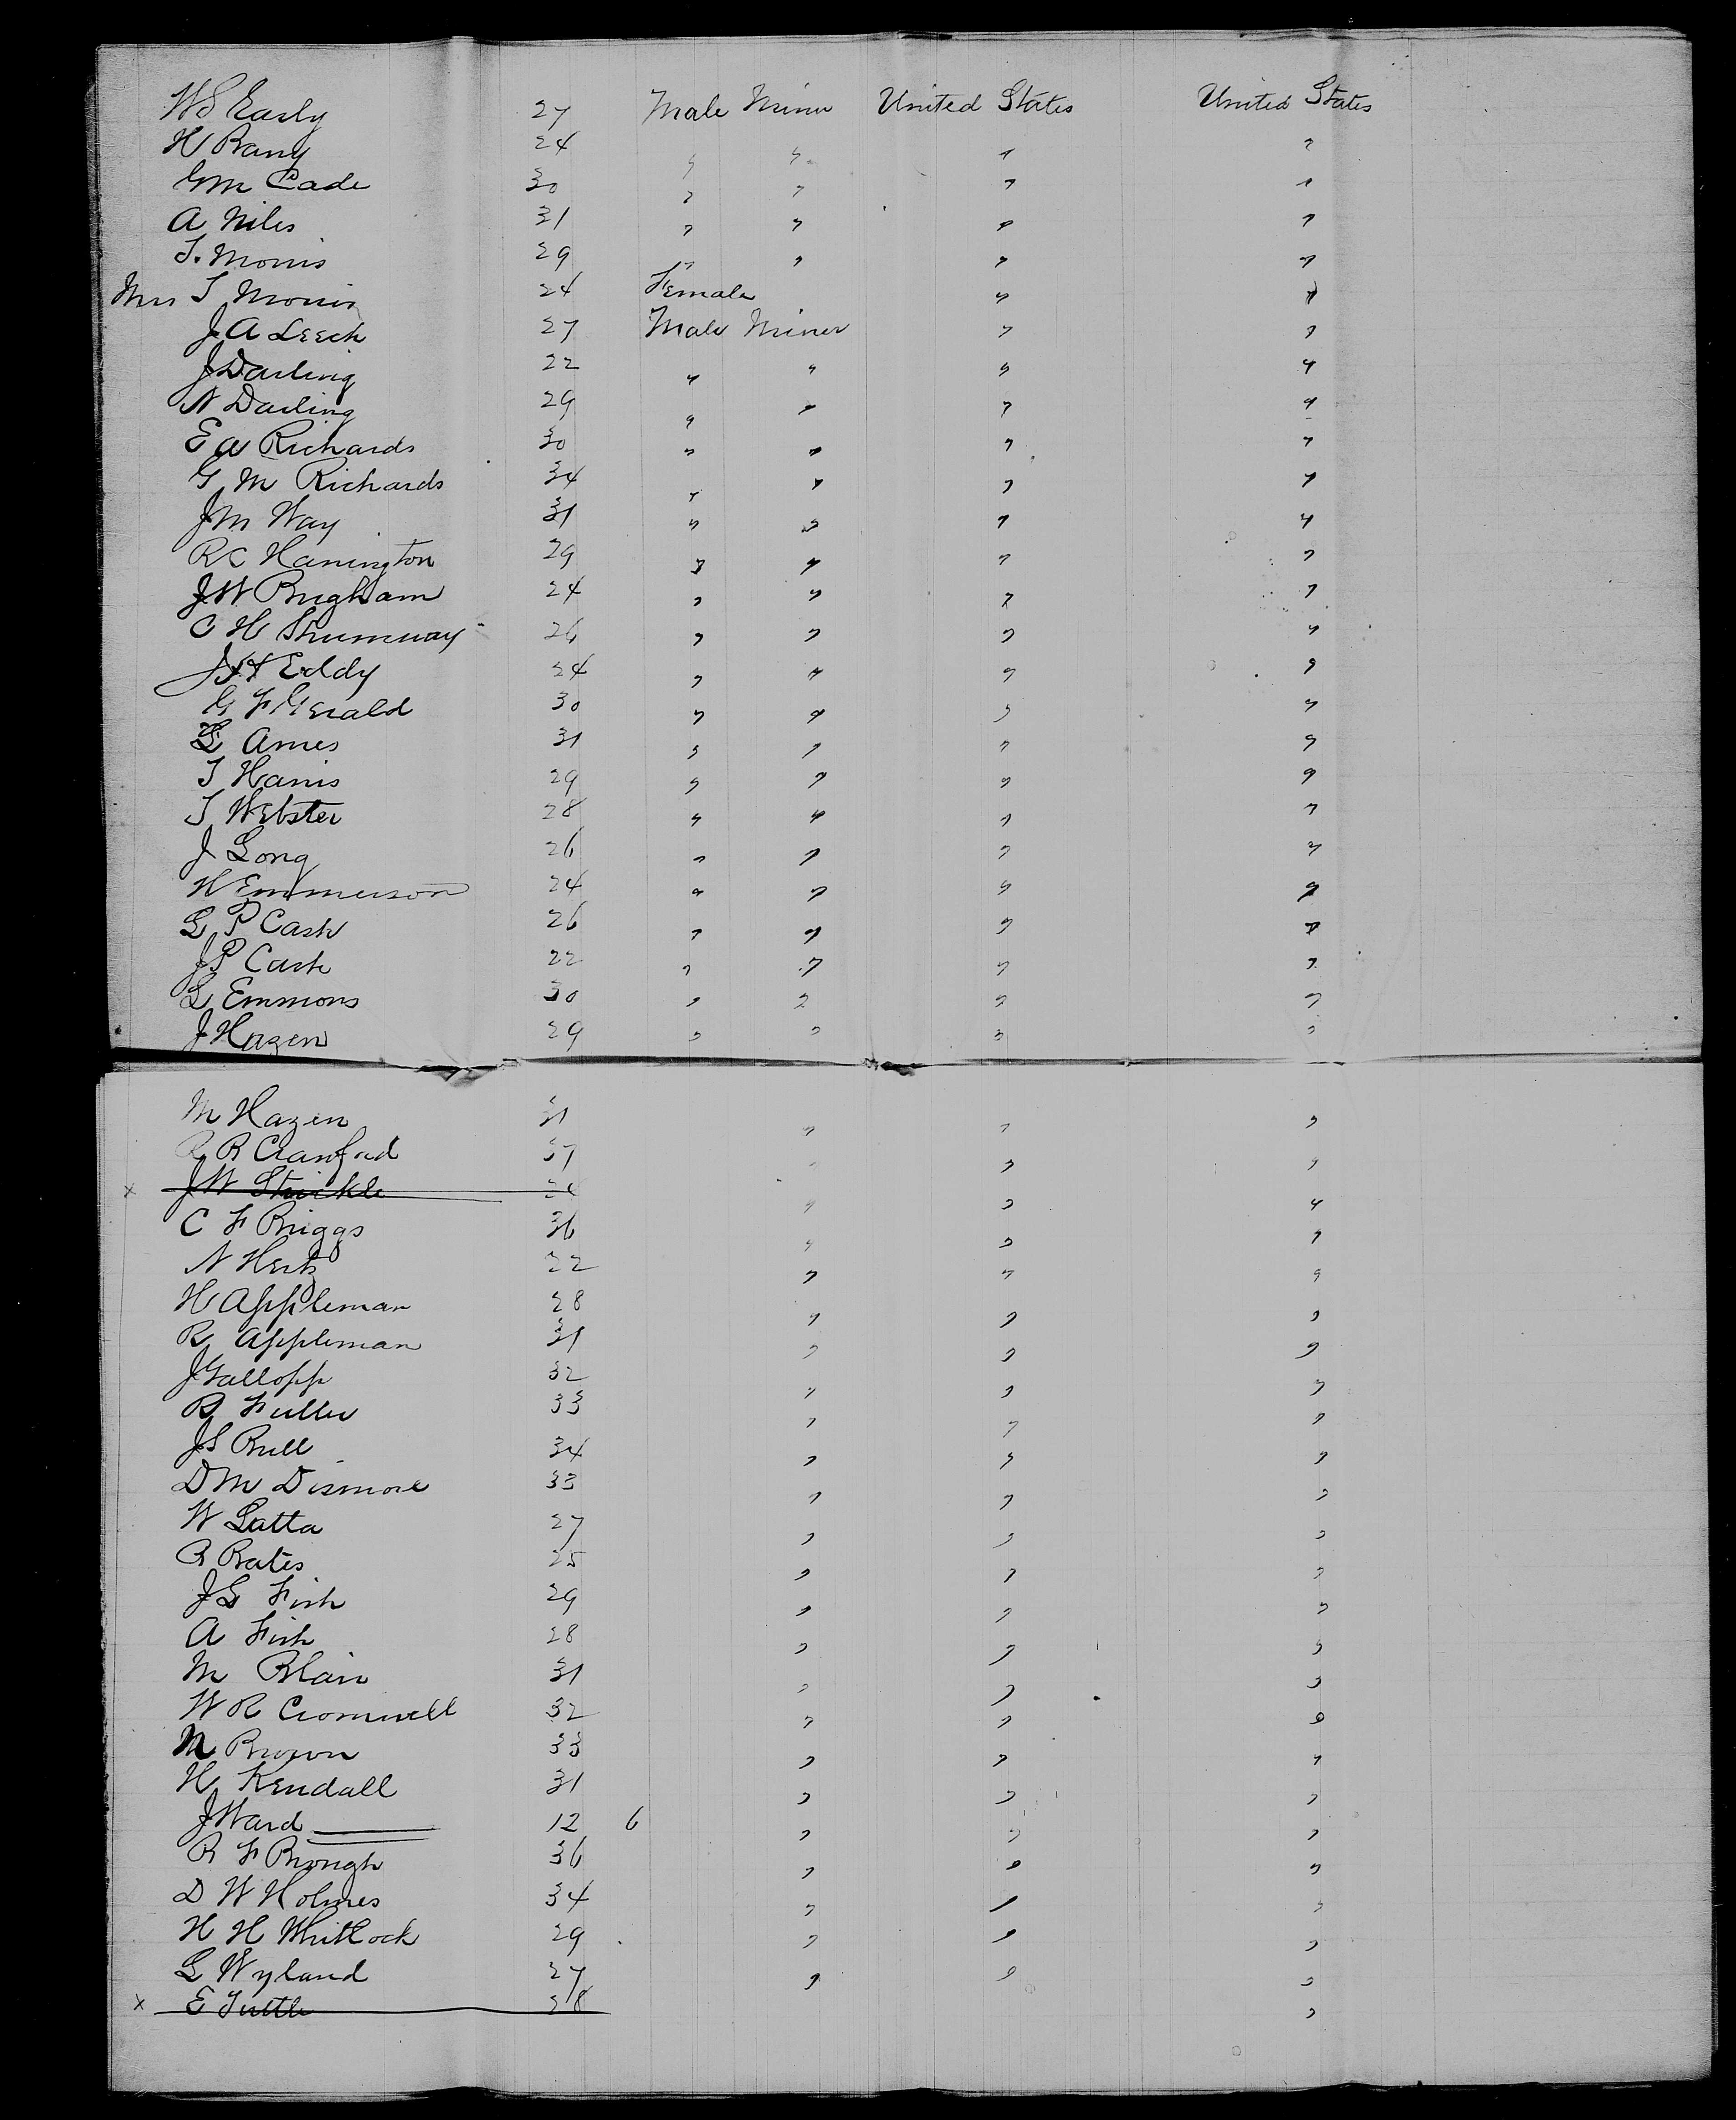 W S Early 27 Male Miner United States United States
H Bany 24 " " " "
G M Cade 30 " " " "
A Niles 31 " " " "
T. Morris 29 " " " "
Mrs T Morris 24 Female " "
J A Leech 27 Male Miner " "
J Darling 22 " " " "
N Darling 29 " " " "
E A Richards 30 " " " "
G M Richards 34 " " " "
J M Way 31 " " " "
R C Harrington 29 " " " "
J W Brigham 24 " " " "
C H Shumway 26 " " " "
J H Eddy 24 " " " "
G F Gerald 30 " " " "
L Ames 31 " " " "
T Harris 29 " " " "
T Webster 28 " " " "
J Long 26 " " " "
H Emmerson 24 " " " "
L P Cash 26 " " " "
J P Cash 22 " " " "
L Emmons 30 " " " "
J Hazen 29 " " " "
M Hazen 31 " " "
R B Crawford 37 " " "
x J W Strickle 24 " " "
C F Briggs 36 " " "
N Hertz 22 " " "
H Appleman 28 " " "
R Appleman 31 " " "
J Gallopp 32 " " "
B Fuller 33 " " "
J S Bull 34 " " "
D M Dismore 33 " " "
W Latta 27 " " "
R Bates 25 " " "
J L Fish 29 " " "
A Fish 28 " " "
M Blair 31 " " "
W R Cromwell 32 " " "
M Brown 33 " " "
H Kendall 31 " " "
J Ward 12 6 " " "
B F Brough 36 " " "
D W Holmes 34 " " "
H H Whitlock 29 " " "
L Wyland 27 " " "
x E Tuttle 28 "